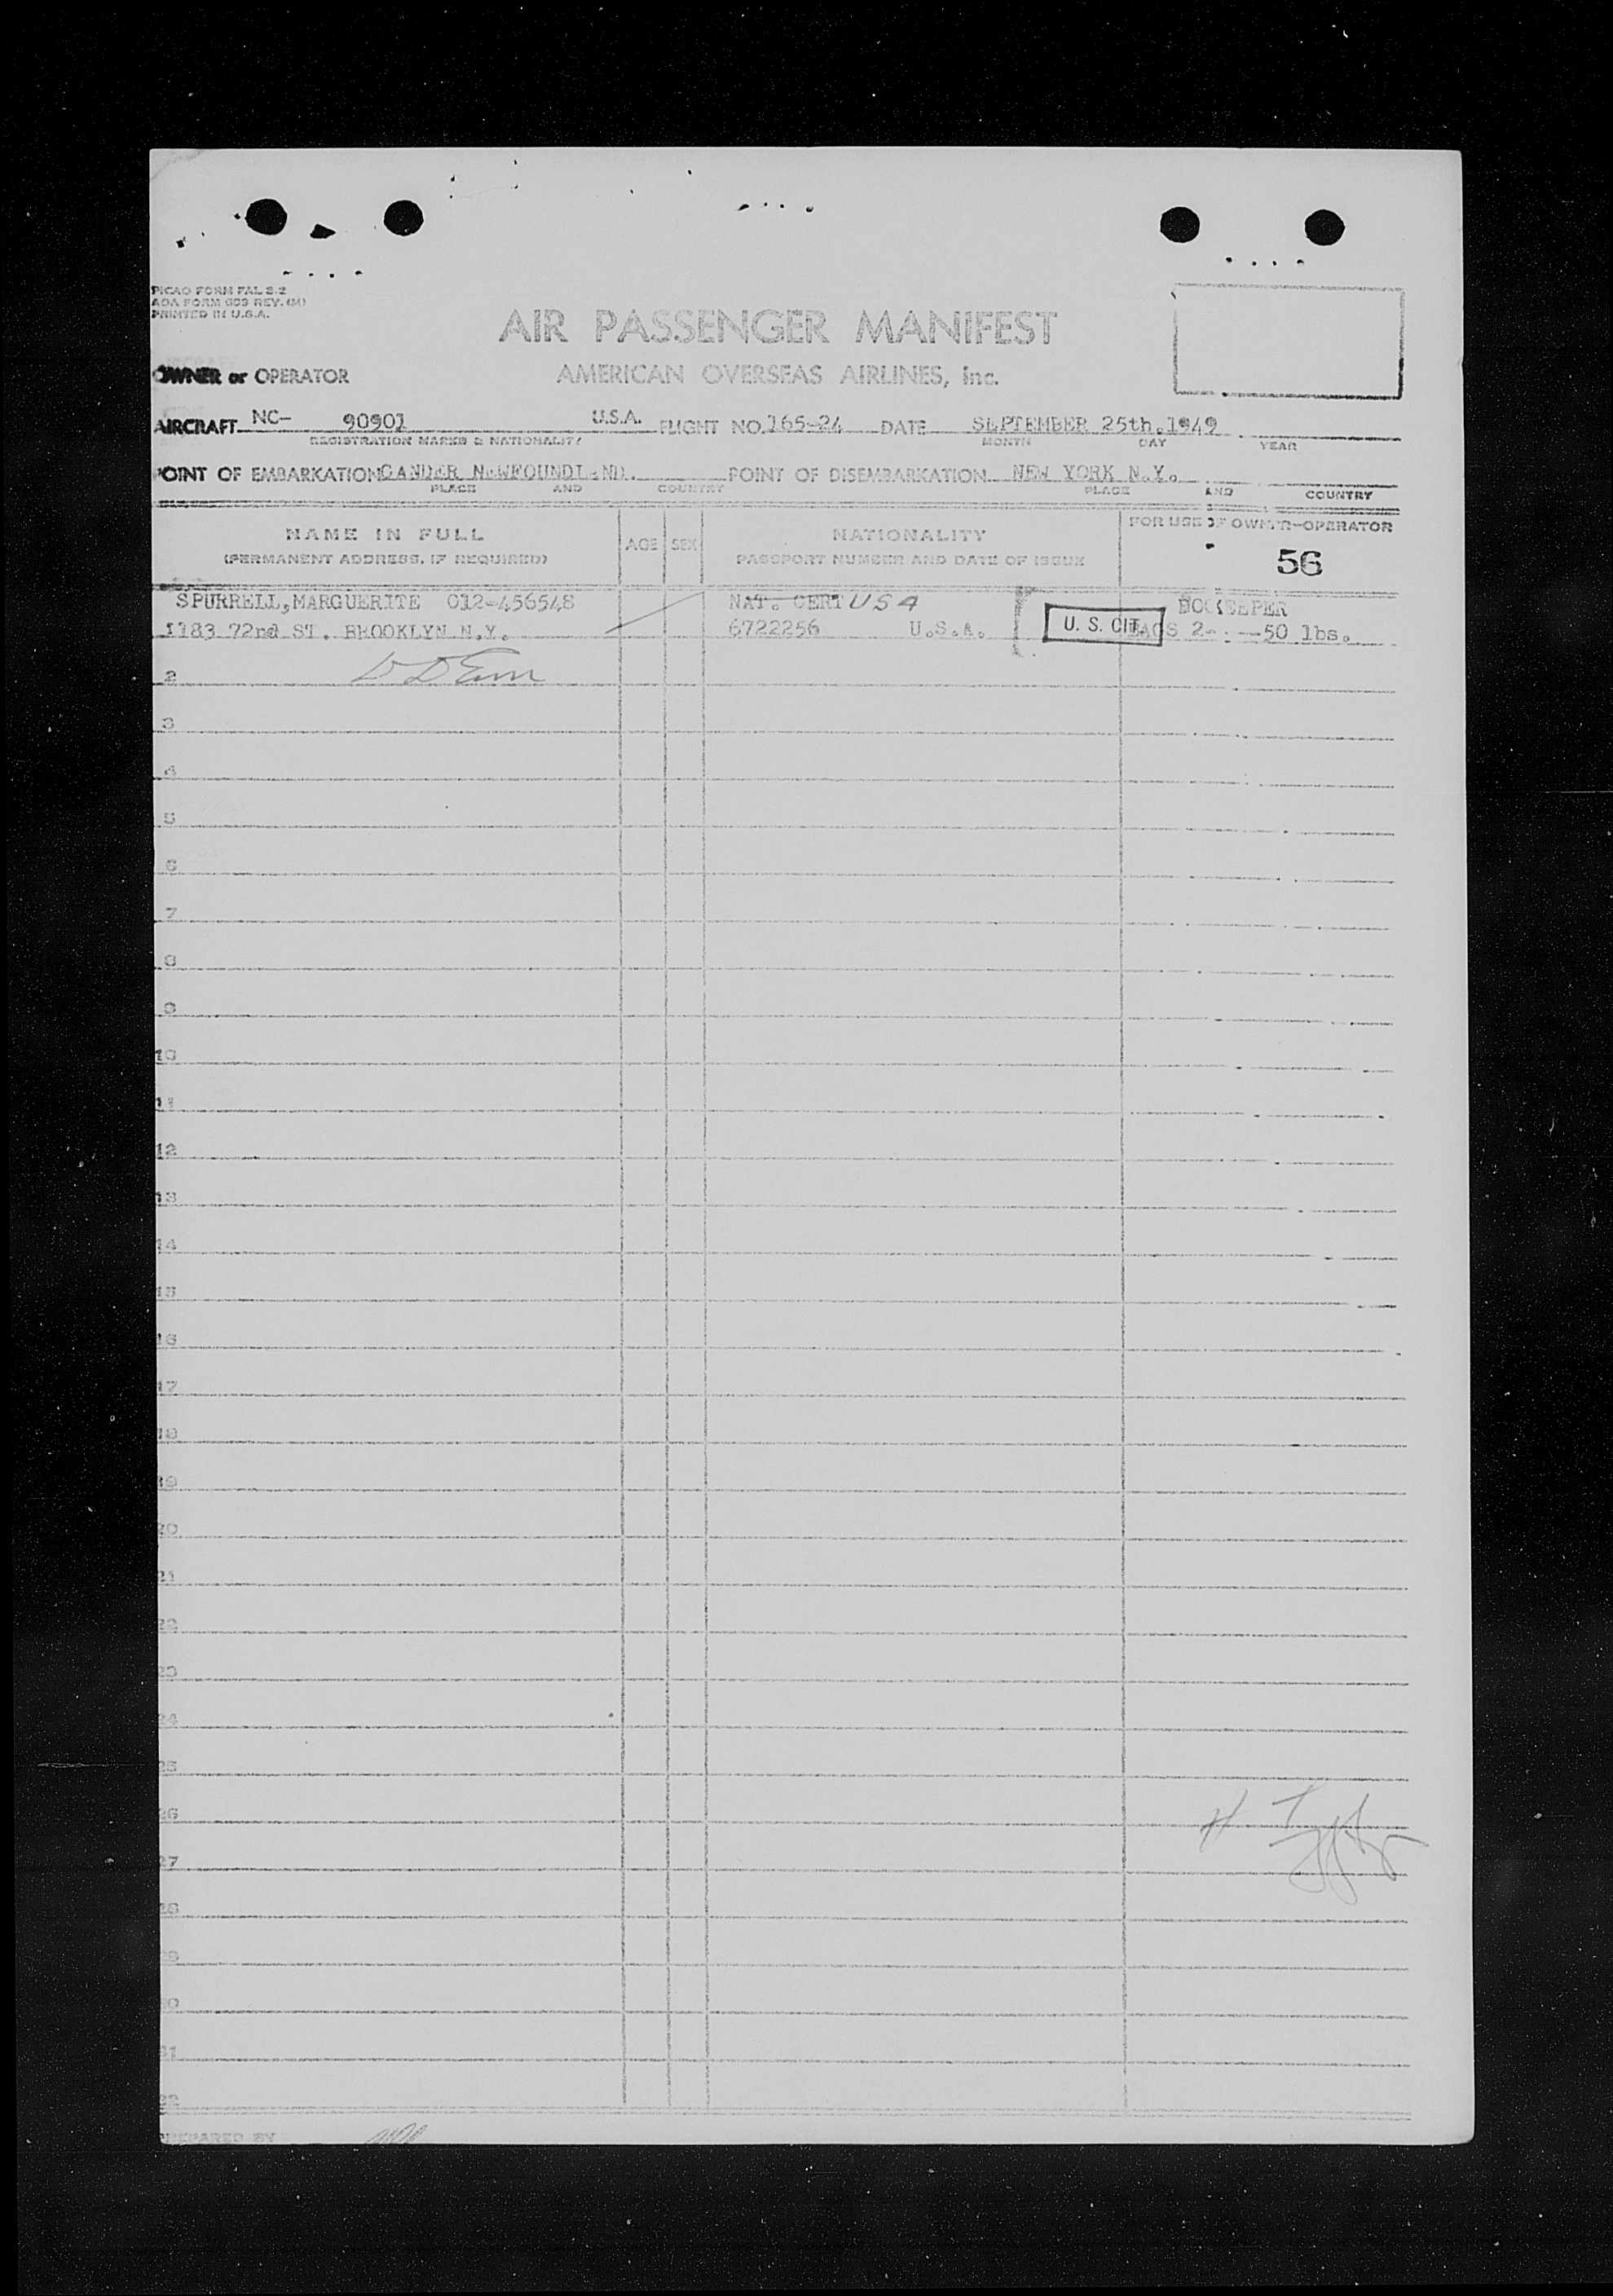 PICAO FORM FAL 2-2
AOA FORM 609 REV. (M)
PRINTED IN U.S.A.
AIR PASSENGER MANIFEST
OWNER or OPERATOR AMERICAN OVERSEAS AIRLINES, Inc.
AIRCRAFT NC- 90901 U.S.A. FLIGHT NO. 165-24 DATE SEPTEMBER 25th.1949
REGISTRATION MARKS & NATIONALITY MONTH DAY YEAR
POINT OF EMBARKATION GANDER NEWFOUNDLAND. POINT OF DISEMBARKATION NEW YORK N.Y.
PLACE AND COUNTRY PLACE AND COUNTRY
NAME IN FULL AGE SEX NATIONALITY FOR USE OF OWNER-OPERATOR
(PERMANENT ADDRESS, IF REQUIRED) PASSPORT NUMBER AND DATE OF ISSUE 56
SPURRELL,MARGUERITE 012-456548 NAT. CERT USA
1183 72nd ST. BROOKLYN N.Y. 6722256 U.S.A. U. S. CIT. BAGS 2- --50 lbs.
2
3
4
5
6
7
8
9
10
11
12
13
14
15
16
17
18
19
20
21
22
23
24
25
26
27
28
29
30
31
32
PREPARED BY